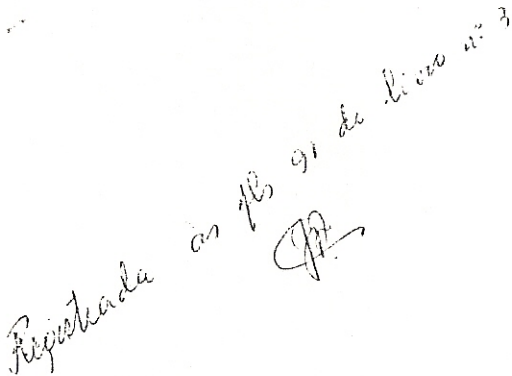 Registrada às fls 91 do livro nº 3